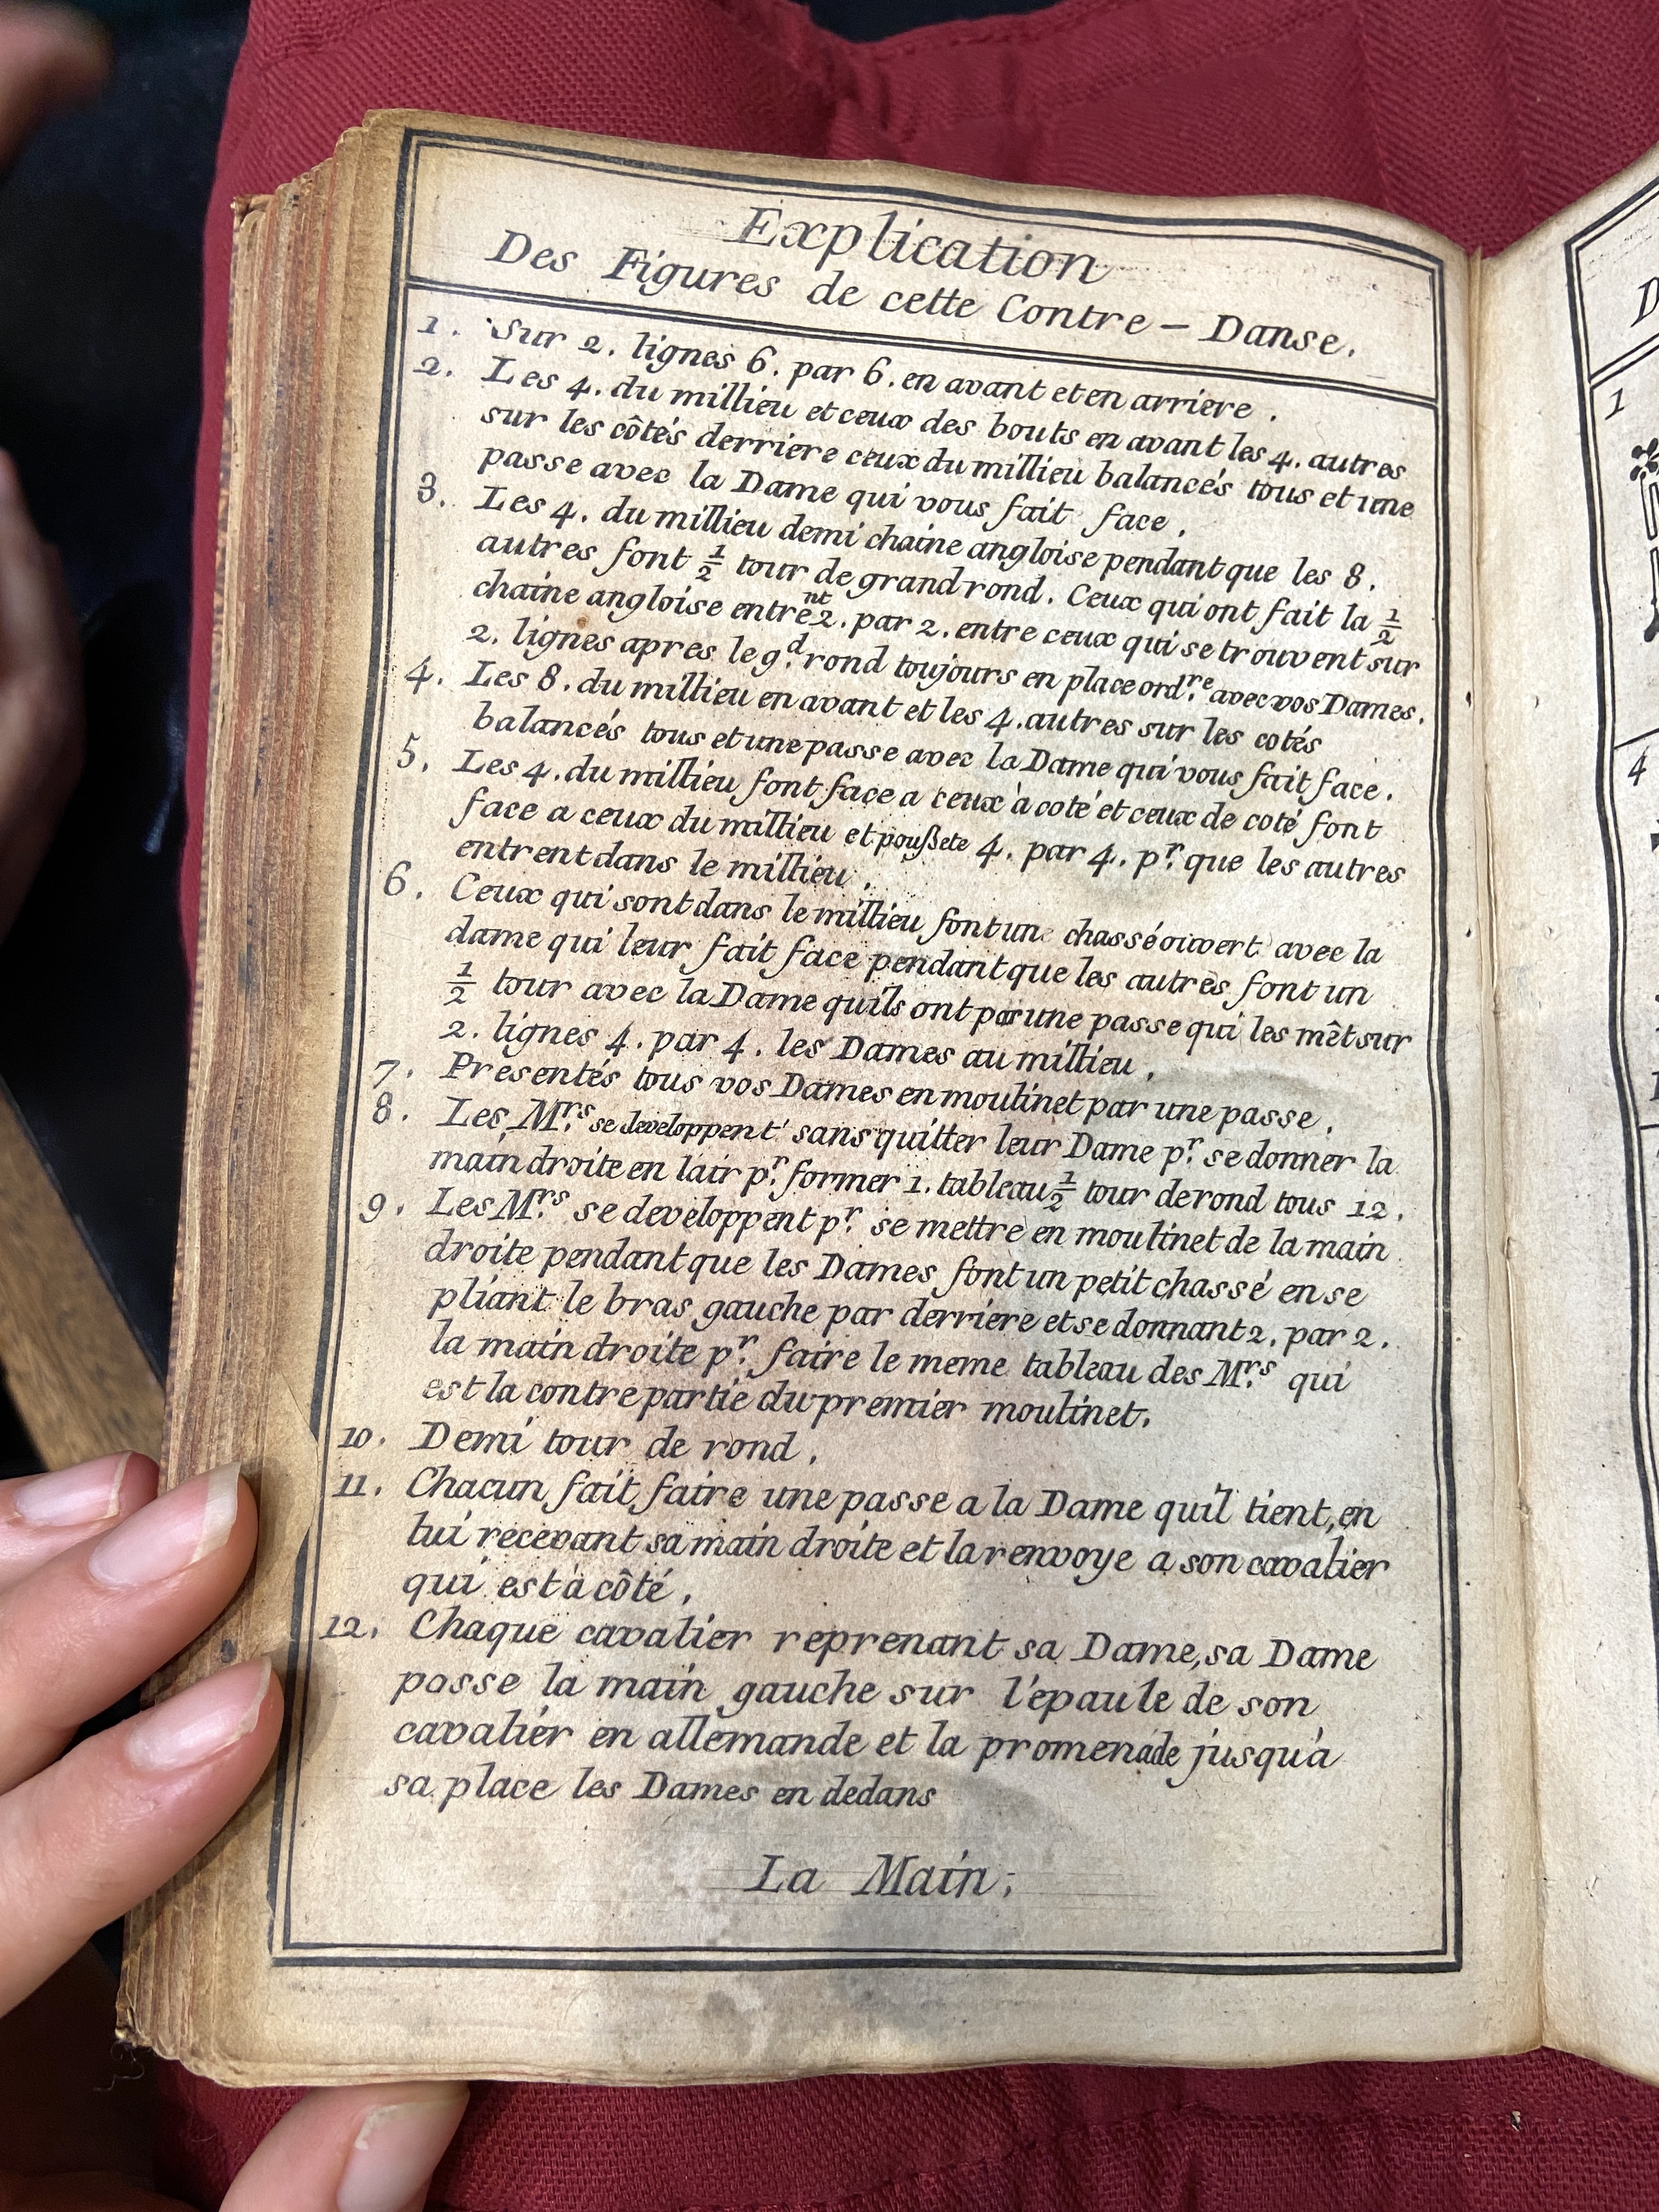 Explication
Des Figures de cette Contre - Danse.
1. Sur 2. lignes 6. par 6. en avant et en arriere.
2. Les 4. du millieu et ceux des bouts en avant les 4. autres
sur les côtés derriere ceux du millieu balancés tous et une
passe avec la Dame qui vous fait face.
3. Les 4. du millieu demi chaine angloise pendant que les 8.
autres font 1/2 tour de grand rond. Ceux qui ont fait la 1/2
chaine angloise entrent 2. par 2. entre ceux qui se trouvent sur
2. lignes apres le gd. rond toujours en place ordre. avec vos Dames.
4. Les 8. du millieu en avant et les 4. autres sur les cotés
balancés tous et une passe avec la Dame qui vous fait face.
5. Les 4. du millieu font face a ceux à coté et ceux de coté font
face a ceux du millieu et poußete 4. par 4. pr. que les autres
entrent dans le millieu.
6. Ceux qui sont dans le millieu font un chassé ouvert avec la
dame qui leur fait face pendant que les autres font un
1/2 tour avec la Dame quils ont par une passe qui les mêt sur
2. lignes 4. par 4. les Dames au millieu.
7. Presentés tous vos Dames en moulinet par une passe.
8. Les Mrs. se developpent sans quitter leur Dame pr. se donner la
main droite en lair pr. former 1. tableau 1/2 tour de rond tous 12.
9. Les Mrs. se developpent pr. se mettre en moulinet de la main
droite pendant que les Dames font un petit chassé en se
pliant le bras gauche par derriere et se donnant 2. par 2.
la main droite pr. faire le meme tableau des Mrs. qui
est la contre partie du premier moulinet.
10. Demi tour de rond.
11. Chacun fait faire une passe a la Dame quil tient, en
lui recevant sa main droite et la renvoye a son cavalier
qui est à côté.
12. Chaque cavalier reprenant sa Dame, sa Dame
passe la main gauche sur l'epaule de son
cavalier en allemande et la promenade jusqu'a
sa place les Dames en dedans
La Main;
D
1
4